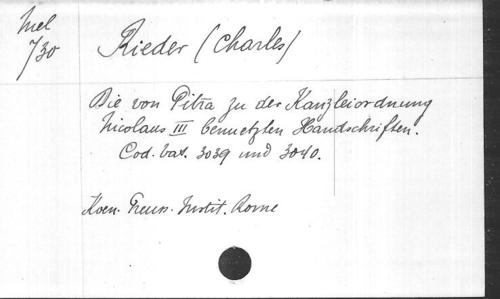 Mel
730
Rieder (Charles)
Die von Pitra zu der Kanzleiordnung
Nicolaus III benuetzten Handschriften.
Cod. vat. 3039 und 3040.
Koen. Preuss. Instit. Rome